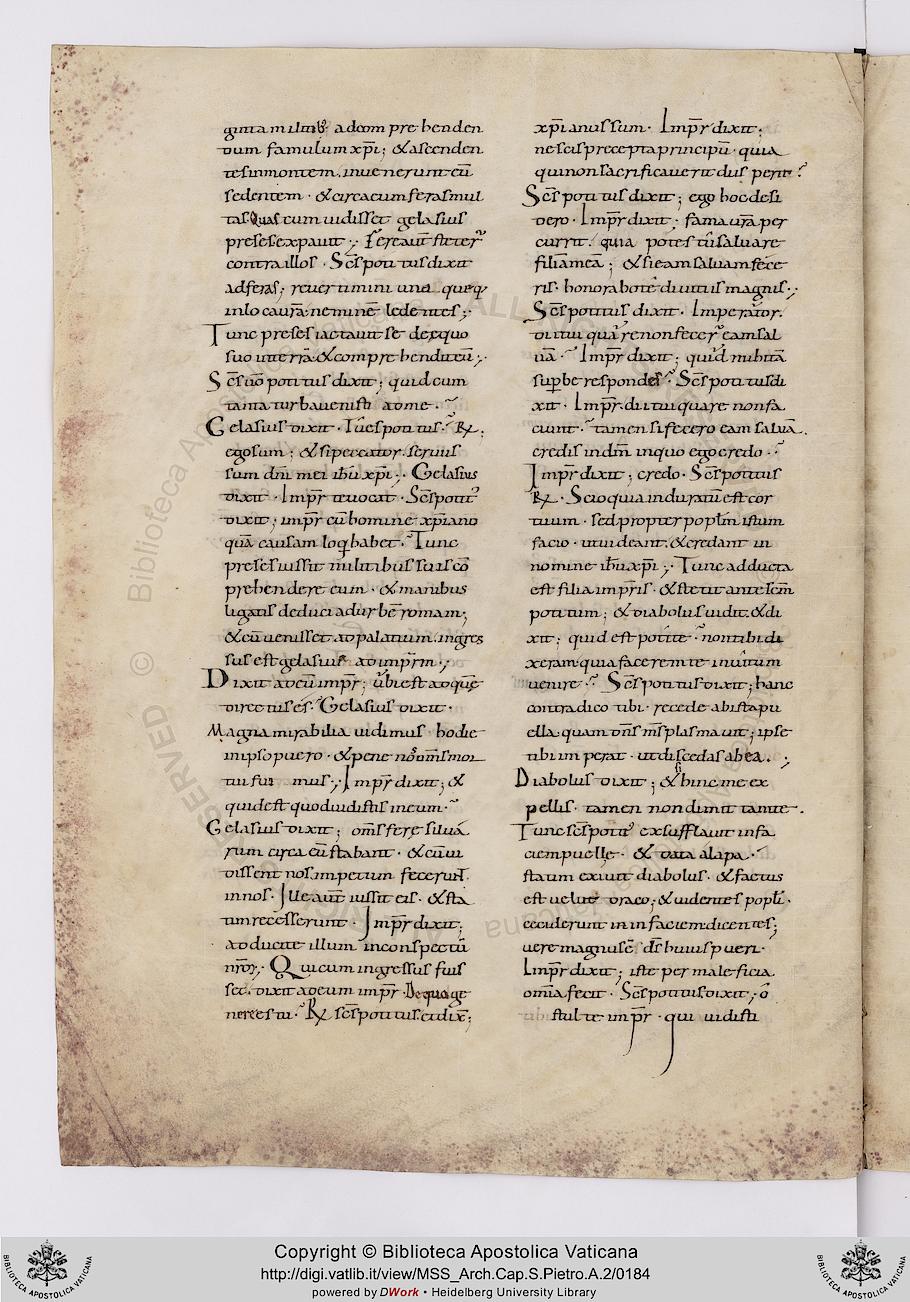 ginta militib; adcomprehenden
dum famulum xp̄i; & ascenden
tes inmontem. inuenerunt eū
sedentem · & circa eum feras mul
tas. Quas cum uidisset gelasius
preses expauit; Fere aut̄ steter̄
contra illos · Sc̄s potitus dixit
ad feras; reuertimini una queq;
in loca ur̄a. nemine ledentes;
Tunc preses iactauit se de equo
suo in terrā & comprehendit eū;
Sc̄s uō potitus dixit; quid cum
tanta turba uenisti ad me ·
Gelasius dixit · Tu es potitus · R̄x.
ego sum; & si peccator. seruus
sum dn̄i mei ih̄u xp̄i; Gelasius
dixit · Imp̄r te uocat · Sc̄s potit'
dixit; imp̄r cū homine xp̄iano
quā causam loq̄ habet. Tunc
preses iussit militibus suis cō
prehendere eum · & manibus
ligatis deduci ad urbē romam;
& cū uenisset ad palatium. ingres
sus est gelasius ad imp̄rm ·;
Dixit ad eū imp̄r; ubi est ad quē
directus es · Gelasius dixit ·
Magna mirabilia uidimus hodie
in ipso puero · & pene nos om̄s mor
tui fui mus; Imp̄r dixit; &
quid est quod uidistis in eum ·
Gelasius dixit; om̄s fere siluā
rum circa eū stabant · & cū ui
dissent nos. impetum fecerunt
in nos · Ille aut̄ iussit eis · & sta
tim recesserunt · Imp̄r dixit;
adducite illum in conspectū
nr̄or̄; Qui cum ingressus fuis
set. dixit ad eum imp̄r · De qua ge
nere es tu · R̄x sc̄s potitus. ei dix̄;
xp̄ianus sum · Imp̄r dixit;
nescis precepta principū · quia
qui non sacrificauerit diis perit?
Sc̄s potitus dixit; ego hoc desi
dero · Imp̄r dixit; fama ur̄a per
currit. quia potes tu saluare
filiā meā; & si eam saluam fece
ris. honorabo te diuitiis magnis;
Sc̄s potitus dixit · Imperator.
dii tui quare non fecer̄ eam sal
uā · Imp̄r dixit; quid mihi tā
sup̄be respondes · Sc̄s potitus di
xit · Imp̄r. dii tui quare non fa
ciunt · tamen si fecero eam saluā.
credis in dm̄ in quo ego credo ·
Imp̄r dixit; credo · Sc̄s potitus
R̄x · Scio quia induratū est cor
tuum · sed propter popl̄m istum
facio · ut uideant. & credant in
nomine ih̄u xp̄i; Tunc adducta
est filia imp̄ris · & stetit ante sc̄m
potitum; & diabolus uidit. & di
xit; quid est potite · non tibi di
xeram quia facerem te inuitum
uenire · Sc̄s potitus dixit; hanc
contradico tibi · recede ab ista pu
ella quam dn̄s m̄s plasmauit; ipse
tibi imperat · ut discedas ab ea. ;
Diabolus dixit; & hinc me ex
pellis · tamen non dimitta te ·
Tunc sc̄s potit' exsufflauit in fa
ciem puelle · & data alapa ·
statim exiuit diabolus · & factus
est uelut draco; & uidentes popl̄i ·
ceciderunt in in faciem dicentes;
uere magnus ē ds̄ huius pueri ·
Imp̄r dixit; iste per maleficia
omīa fecit · Sc̄s potitus dixit; o
stulte imp̄r · qui uidisti
Copyright © Biblioteca Apostolica Vaticana
http://digi.vatlib.it/view/MSS_Arch.Cap.S.Pietro.A.2/0184
powered by DWork • Heidelberg University Library
BIBLIOTECA APOSTOLICA VATICANA
BIBLIOTECA APOSTOLICA VATICANA